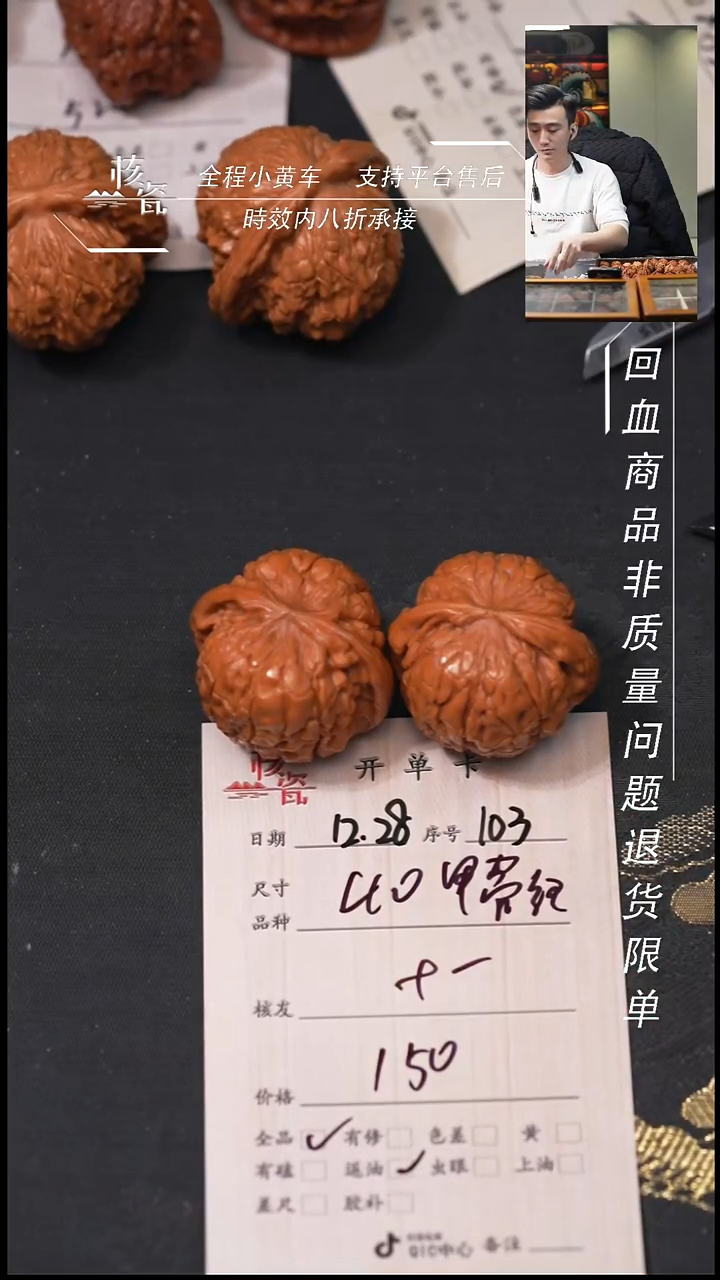 核瓷
全程小黄车 支持平台售后
時效内八折承接
回血商品非质量问题退货限单
核瓷 开单卡
日期 12.28 序号 103
尺寸 40
品种
十一
核发
150
价格
全品 ✓ 有修 色差 黄
有磕 返油 ✓ 虫眼 上油
差尺 胶补
QIC中心 备注